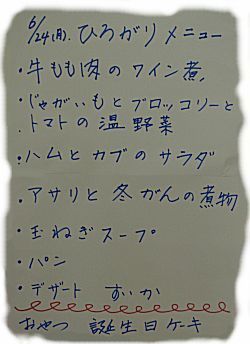 6/24(月). ひろがりメニュー
・牛もも肉のワイン煮
・じゃがいもとブロッコリーと
トマトの温野菜
・ハムとカブのサラダ
・アサリと冬がんの煮物
・玉ねぎスープ
・パン
・デザート すいか
おやつ 誕生日ケーキ